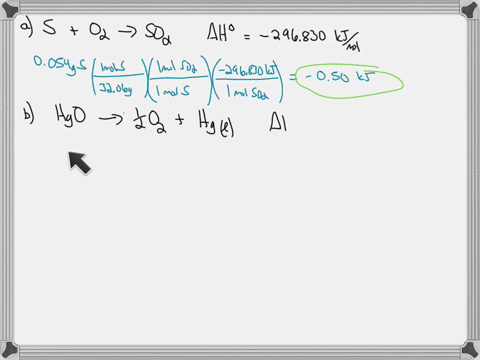 a) S + O₂ → SO₂ ΔH° = -296.830 kJ/mol
0.054g S (1mol S / 32.06g) (1mol SO₂ / 1mol S) (-296.830 kJ / 1mol SO₂) = -0.50 kJ
b) HgO → ½O₂ + Hg(l) Δ|